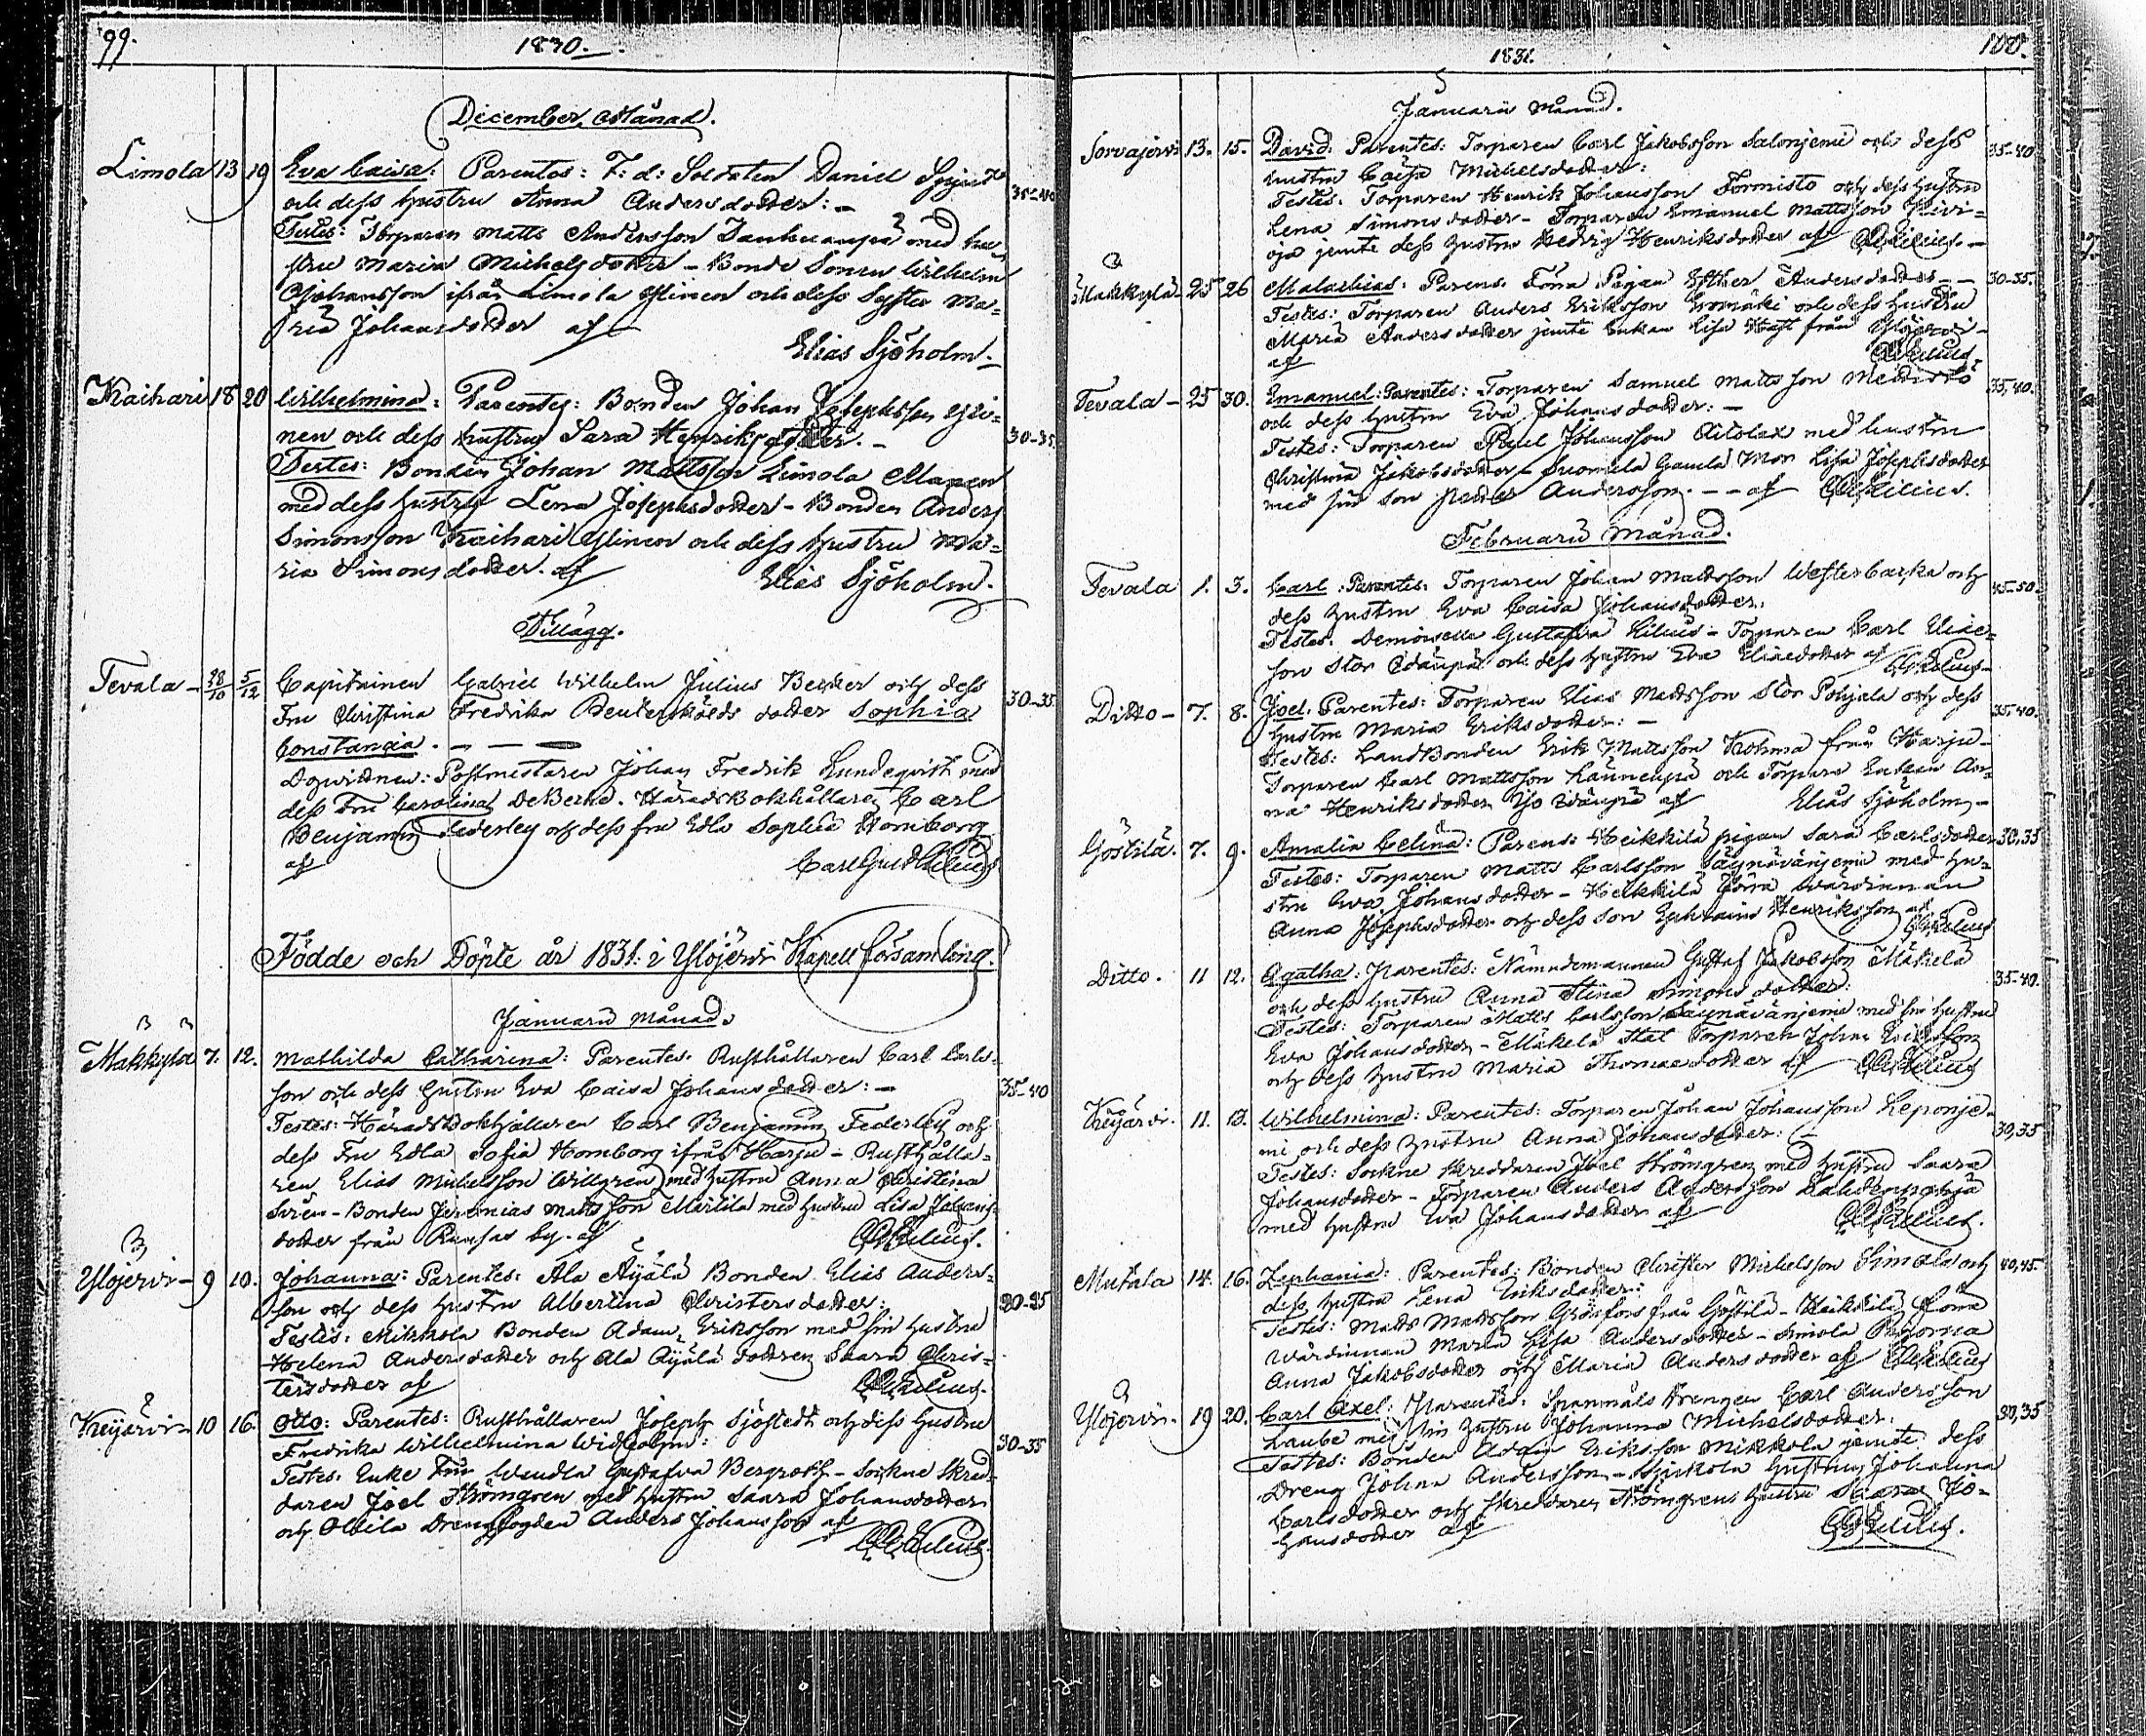 99.
1830.
December Månad.
Limola 13 19 Eva Caisa: Parentes: F: d: Soldaten Daniel 35-40
och dess hustru Anna Andersdotter: -
Testes: Torparen Matts Andersson med hu=
stru Maria Michelsdotter - Bonde Sonen Wilhelm
Johansson ifrån Limola Ylinen och dess Syster Ma=
ria Johansdotter af
Elias Sjöholm.
Kaihari 18 20 Wilhelmina: Parentes: Bonden Johan Josephsson Yli=
nen och dess hustru Sara Henriksdotter. - 30-35
Testes: Bonden Johan Mattsson Limola
med dess hustru Lena Josephsdotter - Bonden Anders
Simonsson Kaihari Ylinen och dess hustru Ma=
ria Simonsdotter. af Elias Sjöholm.
Tillägg.
Tevala - 28/10 5/12 Capitainen Gabriel Wilhelm Julius Becker och dess 30-35
Fru Christina Fredrika Reuterskölds dotter Sophia
Constancia. - - -
Dopvittnen: Postmestaren Johan Fredrik Lundeqvist med
dess Fru Carolina DeBerhd. HäradsBokhållaren Carl
Benjamin Federley och dess fru Edla Sophia Homborg
af Carl Gust Kilius
Födde och Döpte år 1831: i Ylöjervi Kapell församling.
Januarii månad.
Makkylä 7. 12. Mathilda Catharina: Parentes: Rusthållaren Carl Carls=
son och dess hustru Eva Caisa Johansdotter: - 35-40
Testes: HäradsBokhållaren Carl Benjamin Federley och
dess Fru Edla Sofia Homborg ifrån Harju - Rusthålla=
ren Elias Michelsson Willgren med hustru Anna Christina
Siren - Bonden Jeremias Mattsson Märtilä med hustru Lisa Johans=
dotter från Runsas by. af
Ylöjervi - 9 10. Johanna: Parentes: Ala Äijälä Bonden Elias Anders=
son och dess hustru Albertina Christersdotter: 20-25
Testes: Mikkola Bonden Adam Eriksson med sin hustru
Helena Andersdotter och Ala Äijälä dottren Saara Chris=
tersdotter af
Keijärvi - 10 16. Otto: Parentes: Rusthållaren Joseph Sjöstedt och dess hustru
Fredrika Wilhelmina Widholm: 30-35
Testes: Enke Fru Wendla Gustafva Bergroth - Sockne Skred=
daren Joel Strömgren med hustru Saara Johansdotter
och Ollila Drengfogden Anders Johansson af
100.
1831.
Januarii månad.
Sorvajervi 13. 15. David: Parentes: Torparen Carl Jakobsson Salonjemi och dess 35-40
hustru Caisa Michelsdotter:
Testes: Torparen Henrik Johansson Formisto och dess hustru
Lena Simonsdotter - Torparen Emanuel Mattsson Kivi=
oja jemte dess hustru Hedvig Henriksdotter af
Makkylä 25 26 Malachias: Parens: Förra Pigan Esther Andersdotter - - 30-35.
Testes: Torparen Anders Eriksson och dess hustru
Maria Andersdotter jemte Enkan Lisa från Ylöjervi -
af
Tevala - 25 30. Emanuel: Parentes: Torparen Samuel Mattsson 35,40.
och dess hustru Eva Johansdotter: -
Testes: Torparen Paul Johansson Aitolax med hustru
Christina Jakobsdotter - Suomela Gamla Mor Lisa Josephsdotter
med sin son Petter Andersson. - - af
Februarii månad.
Tevala 1. 3. Carl: Parentes: Torparen Johan Mattsson Westerbacka och 45-50.
dess hustru Eva Caisa Johansdotter.
Testes: Demoiselle Gustafva Kilius - Torparen Carl Elias=
son Stor och dess hustru Eva Eliaedotter af
Ditto - 7. 8. Joel: Parentes: Torparen Elias Mattsson Stor Pohjala och dess 35-40.
hustru Maria Eriksdotter: -
Testes: LandBonden Erik Mattsson Kohma från Harju -
Torparen Carl Mattsson och Torpare Enkan An=
na Henriksdotter af Elias Sjöholm -
Göstilä. 7. 9. Amalia Celina: Parens: Heikkilä pigan Sara Carlsdotter 30,35
Testes: Torparen Matts Carlsson Säynävänjemi med hu=
stru Eva Johansdotter - Heikkilä förra wärdinnan
Anna Josephsdotter och dess son Ephraim Henriksson af
Ditto. 11 12. Agatha: Parentes: Nämndemannen Gustaf Jakobsson Mäkelä 35-40.
och dess hustru Anna Stina Simonsdotter:
Testes: Torparen Matts Carlsson Säynävänjemi med sin hustru
Eva Johansdotter - Mäkelä Stat Torparen Johan Eriksson
och dess hustru Maria Thomaedotter af
Keijärvi. 11. 13. Wilhelmina: Parentes: Torparen Johan Johansson Leponje=
mi och dess hustru Anna Johansdotter: 30,35
Testes: Sockne Skreddaren Joel Strömgren med hustru Saara
Johansdotter - Torparen Anders Andersson Lahdenpohja
med hustru Eva Johansdotter af
Mutala 14. 16. Zephania: Parentes: Bonden Christer Michelsson Simola och 40,45.
dess hustru Lena Eriksdotter:
Testes: Matts Mattsson Grönfors från Göstilä - Heikkilä förra
Wärdinnan Maria Lisa Andersdotter - Simola Pigorna
Anna Jakobsdotter och Maria Andersdotter af
Ylöjervi. 19 20. Carl Axel: Parentes: Spanmåls Drengen Carl Andersson 30,35
Laube med sin hustru Johanna Michelsdotter.
Testes: Bonden Adam Eriksson Mikkola jemte dess
Dreng Johan Andersson - hustru Johanna
Carlsdotter och Skreddaren Strömgrens hustru Saara Jo=
hansdotter af